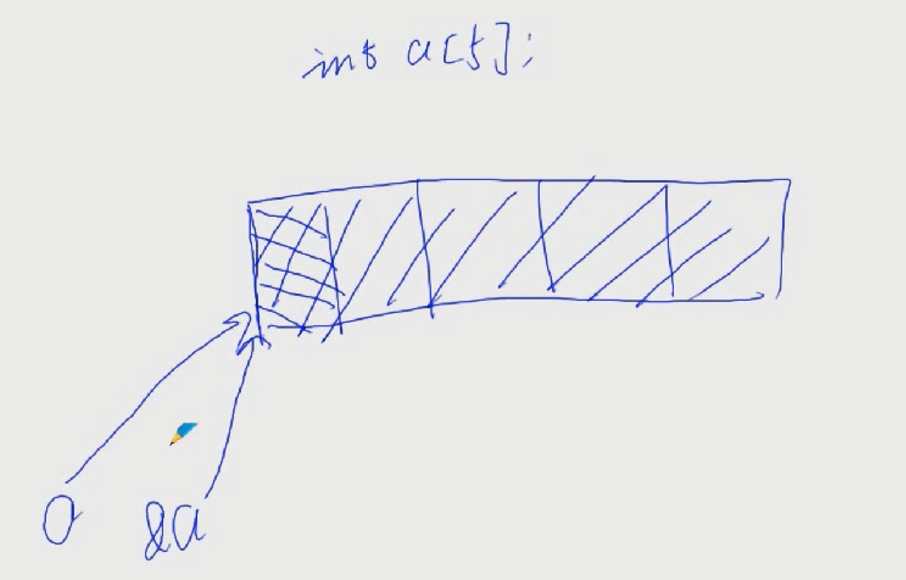 int a[5];
a &a